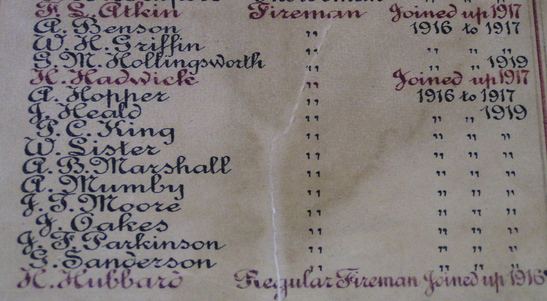 F. L. Atkin Fireman Joined up 1917
A. Benson " 1916 to 1917
W. H. Griffin " " " "
G. M. Hollingsworth " " " 1919
H. Hadwick " Joined up 1917
A. Hopper " 1916 to 1917
J. Heald " " " 1919
P. C. King " " " "
W. Lister " " " "
A. B. Marshall " " " "
A. Mumby " " " "
J. T. Moore " " " "
J. Oakes " " " "
J. F. Parkinson " " " "
G. Sanderson " " " "
H. Hubbard Regular Fireman Joined up 1916